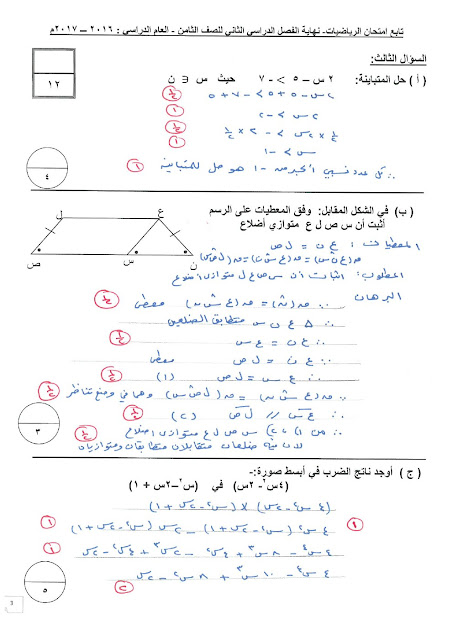 تابع امتحان الرياضيات- نهاية الفصل الدراسي الثاني للصف الثامن - العام الدراسي : ٢٠١٦ – ٢٠١٧م
السؤال الثالث:
١٢
( أ ) حل المتباينة: ٢س – ٥ > – ٧ حيث س ∈ ن
٢س – ٥ + ٥ > – ٧ + ٥
½
٢س > – ٢
١
½ × ٢س > – ٢ × ½
½
س > – ١
١
∴ كل عدد نسبي أكبر من – ١ هو حل للمتباينة
١
٤
(ب) في الشكل المقابل: وفق المعطيات على الرسم
أثبت أن س ص ل ع متوازي أضلاع
ل ع
ص س ن
المعطيات: ع ن = ل ص
المطلوب: اثبات أن س ص ل ع متوازي أضلاع
البرهان
½
∴ △ ع ن س متطابق الضلعين
∴ ع ن = ع س
½
∵ ع ن = ل ص معطى
∴ ع س = ل ص (١)
½
وهما في وضع تناظر
½
∴ ع س // ل ص (٢)
½
∴ من ١، ٢ س ص ل ع متوازي أضلاع
½
لأن فيه ضلعان متقابلان متطابقان ومتوازيان
٣
( ج ) أوجد ناتج الضرب في أبسط صورة:-
(٤س² - ٢س) في (س² – ٢س + ١)
(٤س² - ٢س) × (س² - ٢س + ١)
٤س² (س² - ٢س + ١) – ٢س (س² - ٢س + ١)
١
١
٤س⁴ - ٨س³ + ٤س² - ٢س³ + ٤س² - ٢س
١
٤س⁴ - ١٠س³ + ٨س² - ٢س
٢
٥